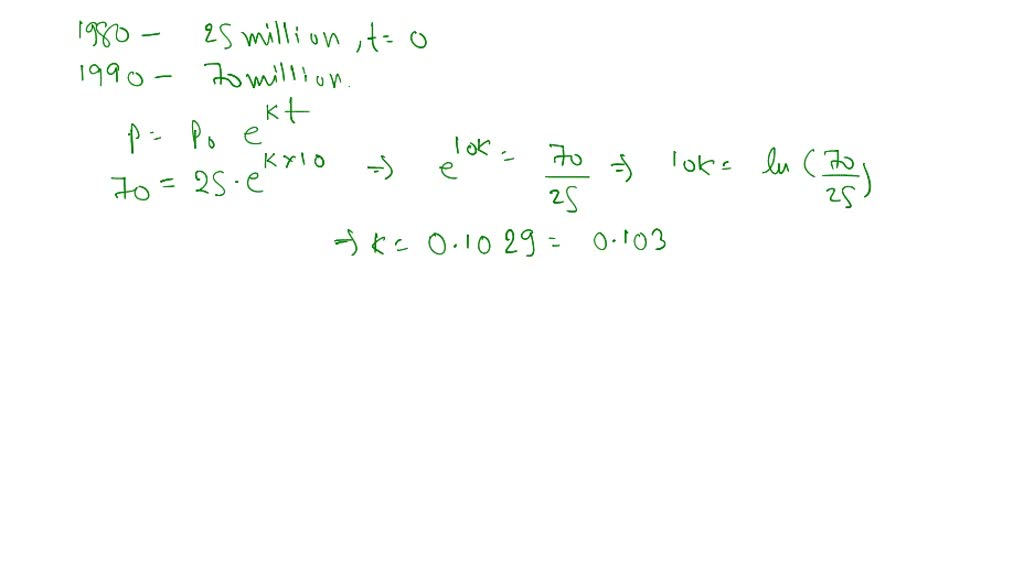 1980 - 25 million, t = 0
1990 - 70 million.
P = P₀ e^{kt}
70 = 25·e^{k×10} ⇒ e^{10k} = 70/25 ⇒ 10k = ln(70/25)
⇒ k = 0.1029 = 0.103